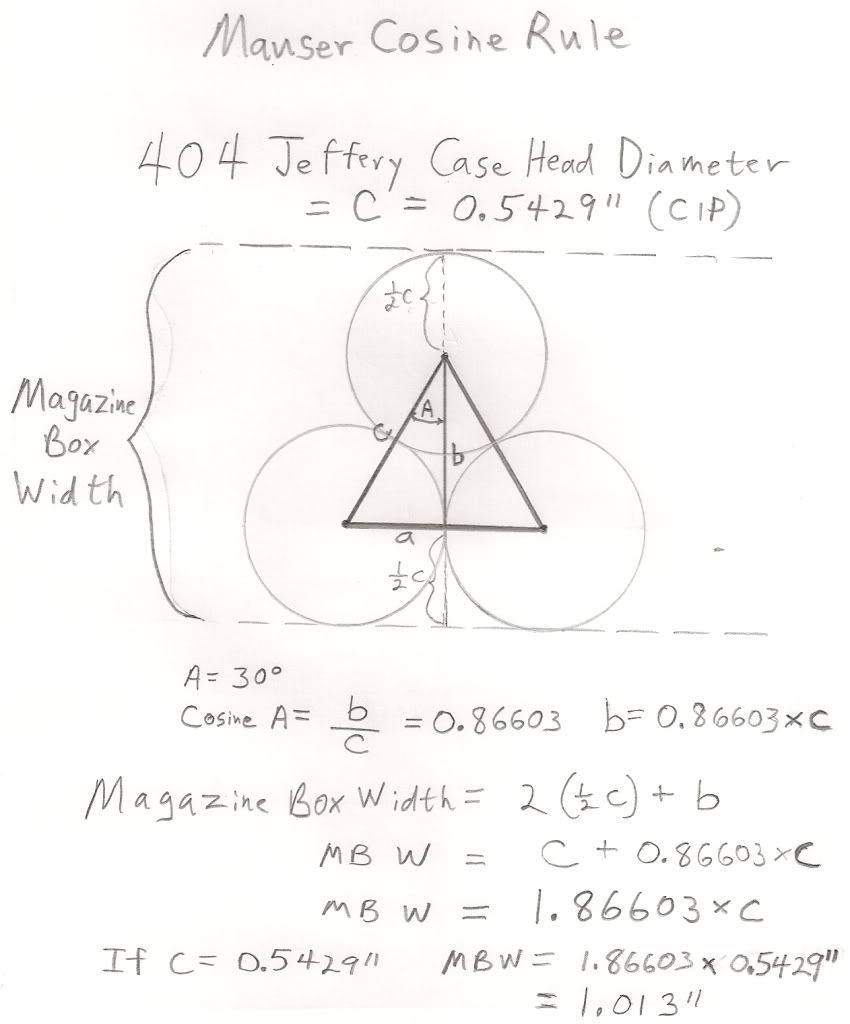 Mauser Cosine Rule
404 Jeffery Case Head Diameter
= C = 0.5429" (CIP)
½c
Magazine
Box
Width
A
c
b
a
½c
A = 30°
Cosine A = b/c = 0.86603 b = 0.86603 × c
Magazine Box Width = 2 (½ c) + b
MB W = C + 0.86603 × C
MB W = 1.86603 × C
If C = 0.5429" MBW = 1.86603 × 0.5429"
= 1.013"